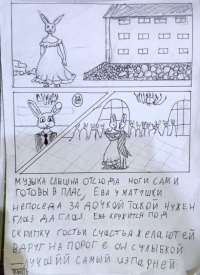 МУЗЫКА СЛЫШНА ОТСЮДА НОГИ САМИ
ГОТОВЫ В ПЛАС, ЕВА У МАТУШКИ
НЕПОСЕДА ЗА ДОЧКОЙ ТАКОЙ НУЖЕН
ГЛАЗ ДА ГЛАЗ ЕВА КРУЖИТСЯ ПОД
СКРИПКУ ГОСТЬИ СЧАСТЬЯ ЖЕЛАЮТ ЕЙ
ВДРУГ НА ПОРОГЕ ОН С УЛЫБКОЙ
ЛУЧШИЙ САМЫЙ ИЗ ПАРНЕЙ